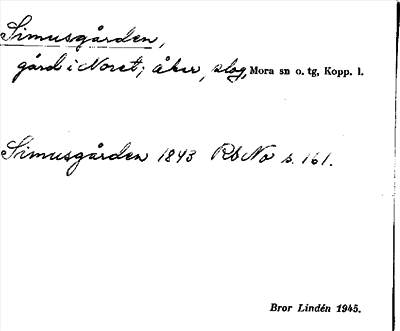 Simusgården,
gård i Noret; åker, slog, Mora sn o. tg, Kopp. l.
Simusgården 1843 RbNo s. 161.
Bror Lindén 1945.